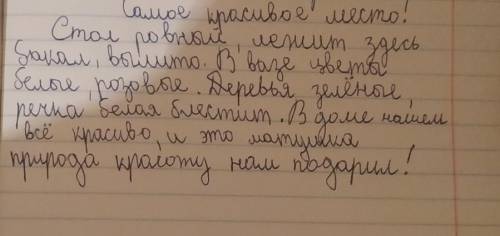 Самое красивое место!
Стол ровный, лежит здесь
бакал, вылито. В вазе цветы
белые, розовые. Деревья зелёные,
речка белая блестит. В доме нашем
всё красиво, и это матушка
природа красоту нам подарил!